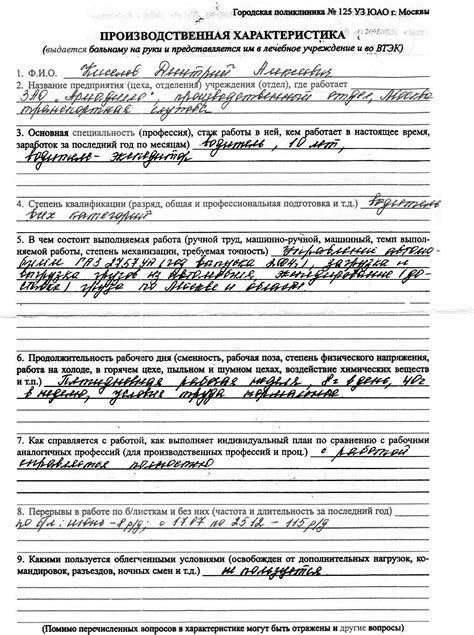 Городская поликлиника № 125 УЗ ЮАО г. Москвы
ПРОИЗВОДСТВЕННАЯ ХАРАКТЕРИСТИКА
(выдается больному на руки и представляется им в лечебное учреждение и во ВТЭК)
1. Ф.И.О. Киселов Дмитрий Алексеевич
2. Название предприятия (цеха, отделения) учреждения (отдел), где работает
ЗАО производственной отдел, Москва
транспортная служба
3. Основная специальность (профессия), стаж работы в ней, кем работает в настоящее время,
заработок за последний год по месяцам) водитель, 10 лет,
водитель-экспедитор
4. Степень квалификации (разряд, общая и профессиональная подготовка и т.д.) водитель
категорий
5. В чем состоит выполняемая работа (ручной труд, машинно-ручной, машинный, темп выпол-
няемой работы, степень механизации, требуемая точность) Управление автомо-
билем ГАЗ (год выпуска 2004), загрузка и
отгрузка грузов из автомобиля, экспедирование (до-
ставка) груза по Москве и области
6. Продолжительность рабочего дня (сменность, рабочая поза, степень физического напряжения,
работа на холоде, в горячем цехе, пыльном и шумном цехах, воздействие химических веществ
и т.п.) Пятидневная рабочая неделя, 8ч в день, 40ч
в неделю, условия труда нормальные
7. Как справляется с работой, как выполняет индивидуальный план по сравнению с рабочими
аналогичных профессий (для производственных профессий и проц.) с работой
справляется полностью
8. Перерывы в работе по б/листкам и без них (частота и длительность за последний год)
по б/л: июнь - 8 р/д; с 17.07 по 25.12 - 115 р/д
9. Какими пользуется облегченными условиями (освобожден от дополнительных нагрузок, ко-
мандировок, разъездов, ночных смен и т.д.) не пользуется
(Помимо перечисленных вопросов в характеристике могут быть отражены и другие вопросы)